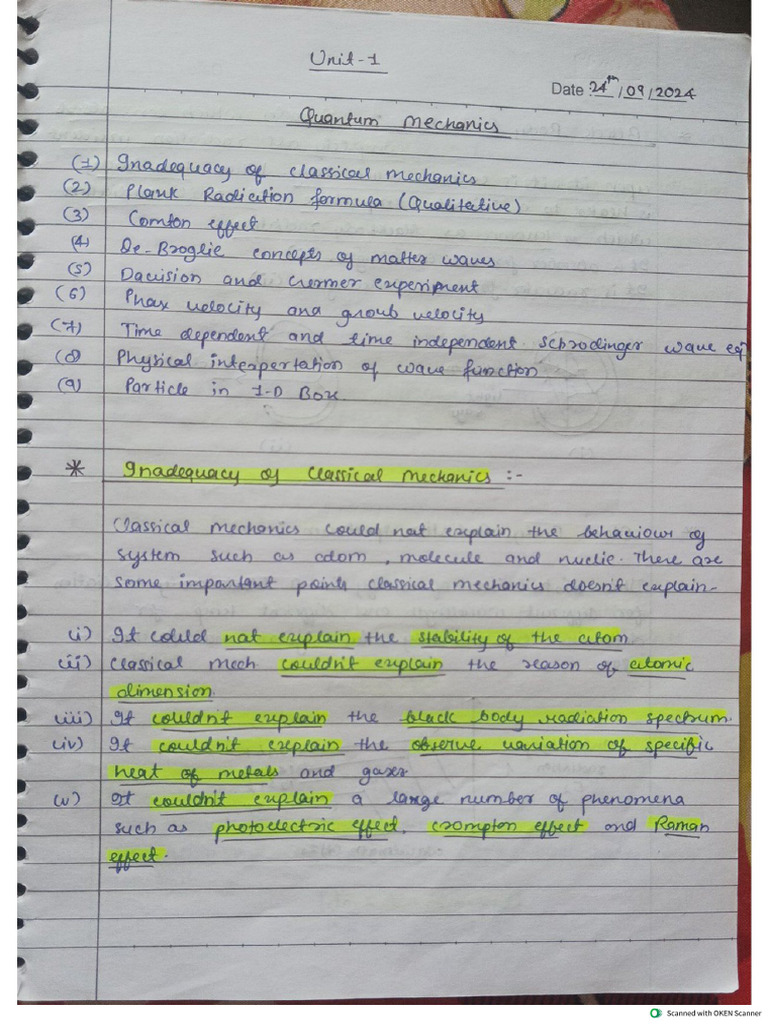 Unit-1
Date :24th/09/2024
Quantum Mechanics
(1) Inadequacy of classical mechanics
(2) Plank Radiation formula (Qualitative)
(3) Comton effect
(4) De-Broglie concepts of matter waves
(5) Dacision and Germer experiment
(6) Phase velocity and groub velocity
(7) Time dependent and time independent schrodinger wave eqn
(8) Physical interpertation of wave function
(9) Particle in 1-D Box
* Inadequacy of classical mechanics :-
Classical mechanics could not explain the behaviour of
system such as atom, molecule and nuclie. There are
some important points classical mechanics doesn't explain-
(i) It could not explain the stability of the atom
(ii) Classical mech couldn't explain the reason of atomic
dimension.
(iii) It couldn't explain the black body radiation spectrum.
(iv) It couldn't explain the observe variation of specific
heat of metals and gases
(v) It couldn't explain a large number of phenomena
such as photoelectric effect, crompton effect and Raman
effect.
Scanned with OKEN Scanner